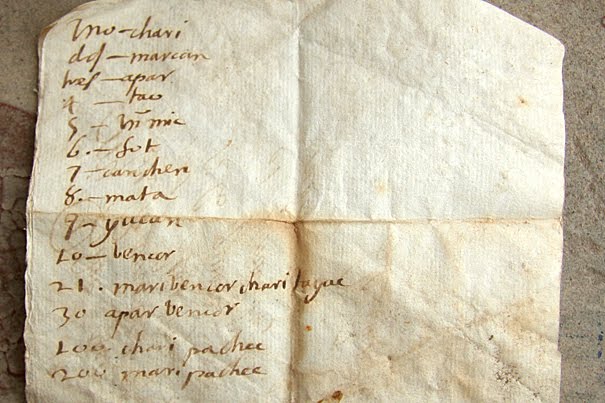 Uno - chari
dos - marcan
tres - apar
4 - tao
5. - himic
6. - sut
7 - canchen
8. - mata
9 - yucan
10 - bencor
21. maribencor chari tayac
30 apar bencor
100 chari pachac
200 mari pachac